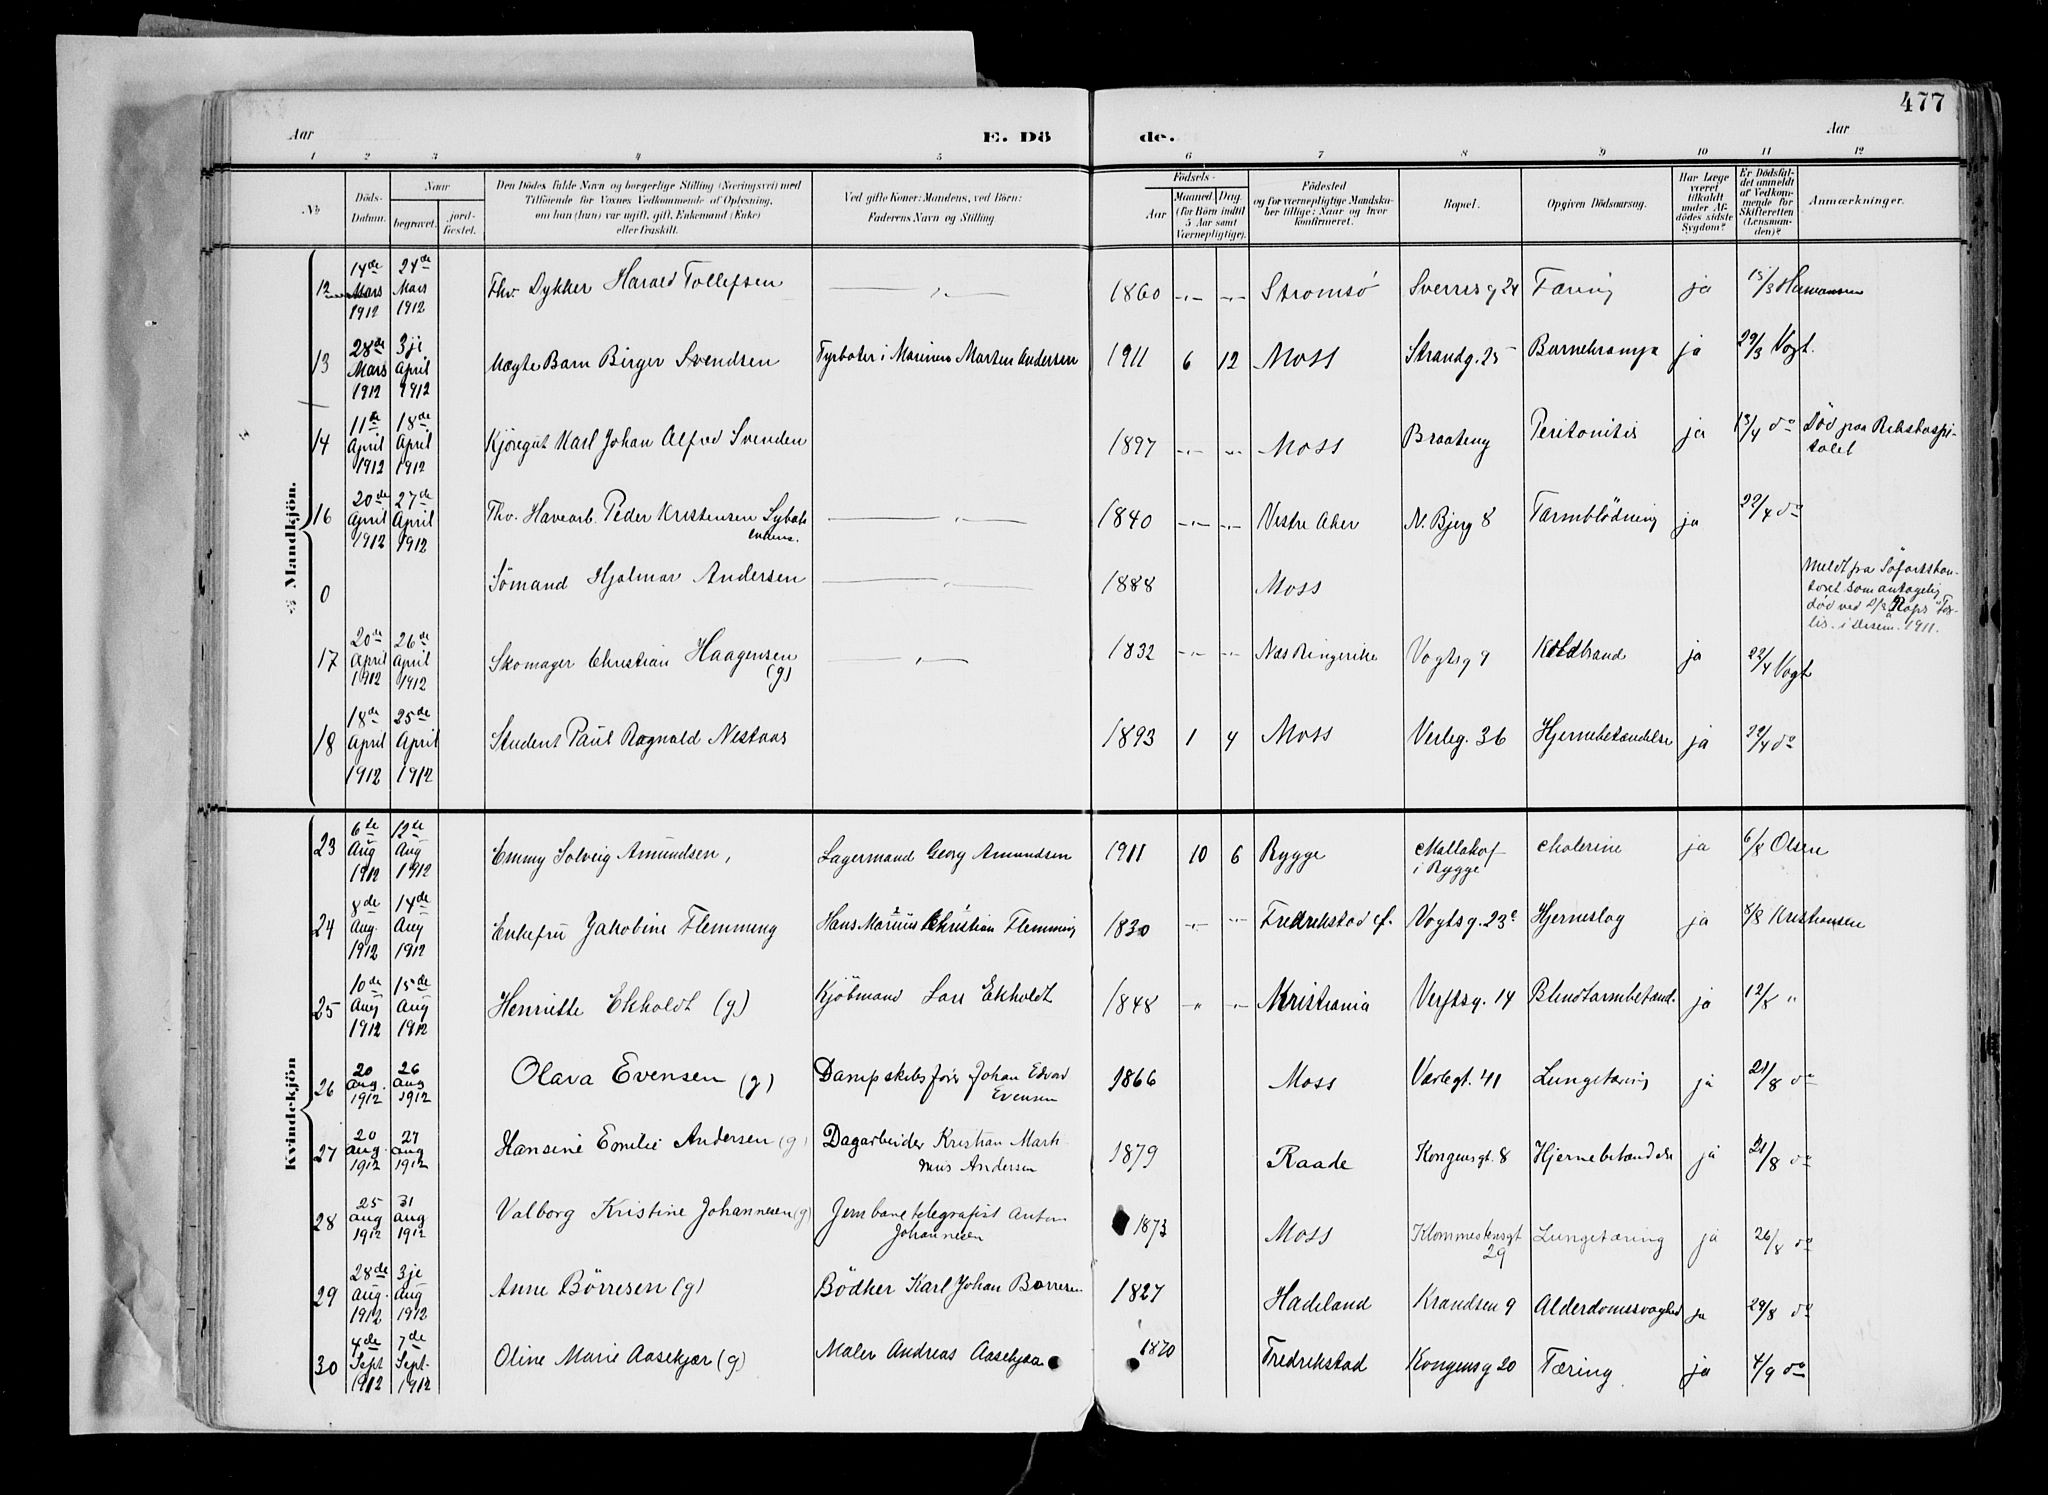 477
Aar E. Dö de. Aar
1 2 3 4 5 6 7 8 9 10 11 12
No Döds-Datum. Naar begravet. jord-fæstet. Den Dödes fulde Navn og borgerlige Stilling (Næringsvei) med Tilföiende for Voxnes Vedkommende af Oplysning, om han (hun) var ugift, gift, Enkemand (Enke) eller fraskilt. Ved gifte Koner: Mandens, ved Börn: Faderens Navn og Stilling. Födsels- Aar Maaned Dag. (for Börn indtil 5 Aar samt Værnepligtige). Födested og for værnepligtige Mandska-ber tillige: Naar og hvor konfirmeret. Bopæl. Opgiven Dödsaarsag. Har Læge været tilkaldt under Af-dödes sidste Sygdom? Er Dödsfal-det anmeldt af Vedkom-mende for Skifteretten (Lensman-den)? Anmærkninger.
Mandkjön.
12 14de Mars 1912 24de Mars 1912 Fhv. Dykker Harald Tollefsen —„— 1860 -„- -„- Stromsö Sverresg 24 Tæring ja 15/3 Hermansen
13 28de Mars 1912 3je April 1912 Uægte Barn Birger Svendsen Fyrböter i Marinen Martin Andersen 1911 6 12 Moss Strandg. 25 Barnekrampe ja 29/3 Vogt.
14 11de April 1912 18de April 1912 Kjöregut Karl Johan Alfred Svenden 1897 -„- -„- Moss Braateng Peritonitis ja 13/4 do Död paa Rikshospi-talet
16 20de April 1912 27de April 1912 Fhv. Havearb. Peder Kristensen —„— 1840 -„- -„- Vestre Aker N. Bjerg 8 Tarmblödning ja 22/4 do
0 Sömand Hjalmar Andersen —„— 1888 Moss Meldt fra Söfartskon-toret som antagelig död ved D/S "Rops" For-lis i desem. 1911.
17 20de April 1912 26de April 1912 Skomager Christian Haagensen (g) —„— 1832 -„- -„- Næs Ringerike Vogtsg 9 Koldbrand ja 22/4 Vogt
18 18de April 1912 25de April 1912 Student Paul Ragnald Nestaas 1893 1 4 Moss Verleg. 36 Hjernebetændelse ja 22/4 do
Kvindekjön
23 6de Aug 1912 12de Aug 1912 Emmy Solveig Amundsen, Lagermand Georg Amundsen 1911 10 6 Rygge Mallakof i Rygge Cholerine ja 6/8 Olsen
24 8de Aug. 1912 14de Aug 1912 Enkefru Jakobine Flemming Hans Marius Christian Flemming 1830 -„- -„- Fredrekstad Vogtsg. 23c Hjerneslag ja 8/8 Kristiansen
25 10de Aug 1912 15de Aug 1912 Henriette Ekholdt (g) Kjöbmand Lars Ekholdt 1848 „ -„- Kristiania Verftsg. 14 Blindtarmbetænd. ja 12/8 „
26 20 Aug. 1912 26 Aug 1912 Olava Evensen (g) Dampskibsförer Johan Edvard Evensen 1866 Moss Værlegt. 41 Lungetæring ja 21/8 do
27 20 Aug. 1912 27 Aug 1912 Hansine Emilie Andersen (g) Dagarbeider Kristian Mart-inus Andersen 1879 Raade Kongensgt. 8 Hjernebetændelse ja 21/8 do
28 25 Aug 1912 31 Aug 1912 Valborg Kristine Johannesen (g) Jernbanetelegrafist Anton Johannesen 1873 Moss Klommestensgt 29 Lungetæring ja 26/8 do
29 28de Aug. 1912 3je Aug 1912 Anne Börresen (g) Bödker Karl Johan Börresen 1827 Hadeland Krandsen 9 Alderdomssvaghed ja 29/8 do
30 4de Sept 1912 7de Sept. 1912 Oline Marie Aasekjær (g) Maler Andreas Aasekjær 1870 Fredrikstad Kongensg 20 Tæring ja 4/9 do